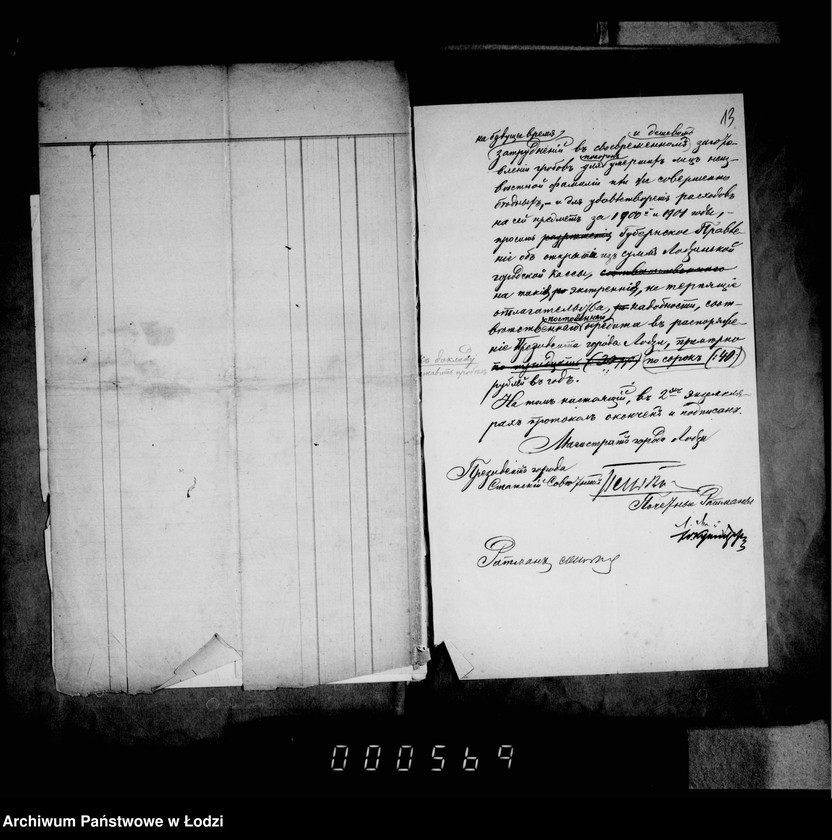 13
на будущее время и дешевомъ
затрудненій въ своевременномъ загото-
вленіи гробовъ для умершихъ лицъ неиз-
вѣстной фамиліи или же совершенно
бѣдныхъ, и для удовлетворенія расходовъ
на сей предметъ за 1900 и 1901 годы,
проситъ Губернское Правле-
ніе объ открытіи изъ суммъ Лодзинской
городской кассы,
на такія экстренныя, не терпящія
отлагательства, надобности, соот-
вѣтственнаго постояннаго кредита въ распоряже-
ніе Президента города Лодзи, примѣрно
по тридцати (30) по сорокъ (40)
рублей въ годъ.
На томъ настоящій, въ 2хъ экземпля-
рахъ протоколъ оконченъ и подписанъ.
Магистратъ города Лодзи
Президентъ города
Статскій Совѣтникъ
Почетные Ратманы
Ратманъ
000569
Archiwum Państwowe w Łodzi